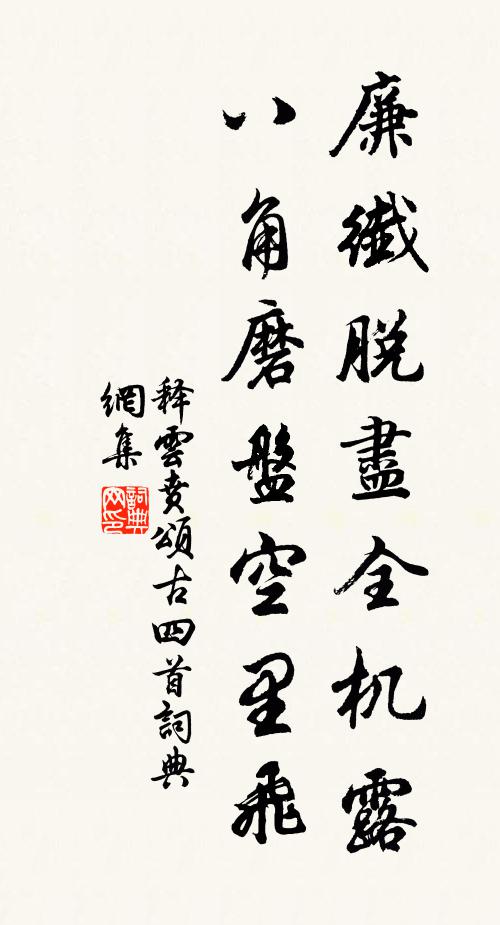 廉纖脱盡全机露
八角磨盤空里飛
释雲賁頌古四首詞典
網集
詞典
网印